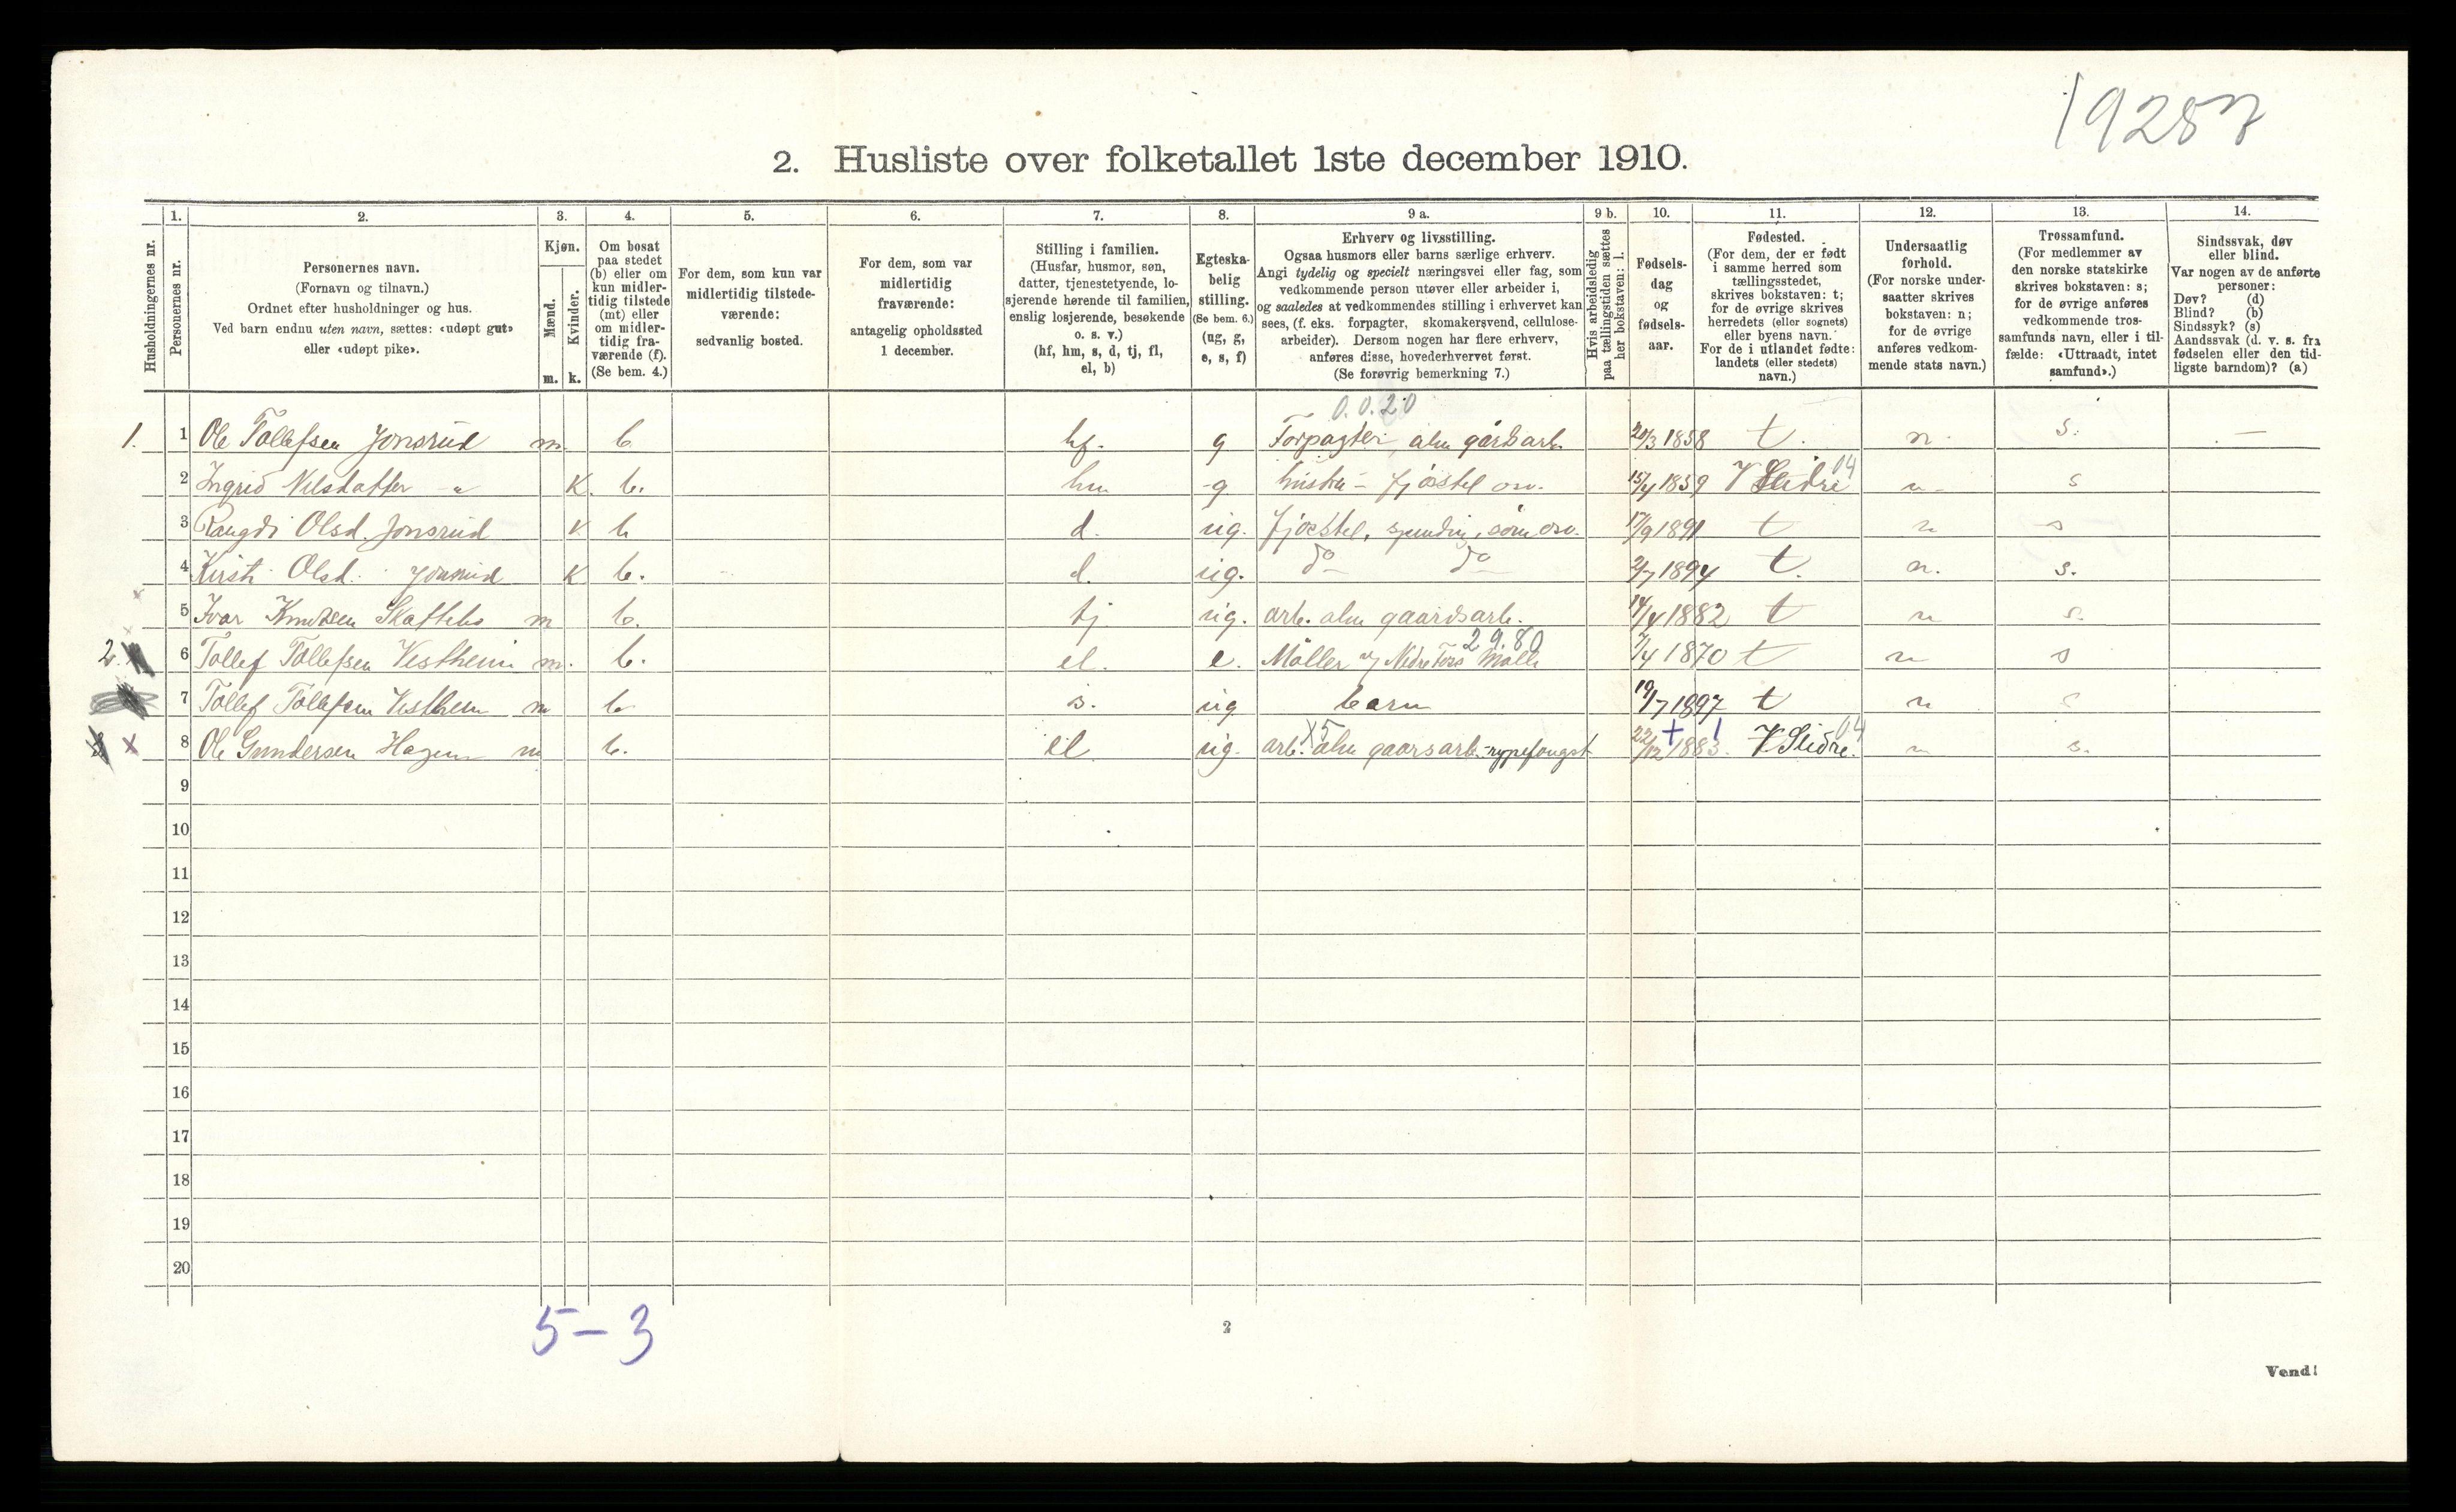 19287
2. Husliste over folketallet 1ste december 1910.
Husholdningernes nr.
1. Personernes nr.
2. Personernes navn. (Fornavn og tilnavn.) Ordnet efter husholdninger og hus. Ved barn endnu uten navn, sættes: «udøpt gut» eller «udøpt pike».
3. Kjøn. Mænd. m. Kvinder. k.
4. Om bosat paa stedet (b) eller om kun midlertidig tilstede (mt) eller om midlertidig fraværende (f). (Se bem. 4.)
5. For dem, som kun var midlertidig tilstedeværende: sedvanlig bosted.
6. For dem, som var midlertidig fraværende: antagelig opholdssted 1 december.
7. Stilling i familien. (Husfar, husmor, søn, datter, tjenestetyende, losjerende hørende til familien, enslig losjerende, besøkende o. s. v.) (hf, hm, s, d, tj, fl, el, b)
8. Egteskabelig stilling. (Se bem. 6.) (ug, g, e, s, f)
9 a. Erhverv og livsstilling. Ogsaa husmors eller barns særlige erhverv. Angi tydelig og specielt næringsvei eller fag, som vedkommende person utøver eller arbeider i, og saaledes at vedkommendes stilling i erhvervet kan sees, (f. eks. forpagter, skomakersvend, cellulosearbeider). Dersom nogen har flere erhverv, anføres disse, hovederhvervet først. (Se forøvrig bemerkning 7.)
9 b. Hvis arbeidsledig paa tællingstiden sættes her bokstaven: l.
10. Fødselsdag og fødselsaar.
11. Fødested. (For dem, der er født i samme herred som tællingsstedet, skrives bokstaven: t; for de øvrige skrives herredets (eller sognets) eller byens navn. For de i utlandet fødte: landets (eller stedets) navn.)
12. Undersaatlig forhold. (For norske undersaatter skrives bokstaven: n; for de øvrige anføres vedkommende stats navn.)
13. Trossamfund. (For medlemmer av den norske statskirke skrives bokstaven: s; for de øvrige anføres vedkommende trossamfunds navn, eller i tilfælde: «Uttraadt, intet samfund».)
14. Sindssvak, døv eller blind. Var nogen av de anførte personer: Døv? (d) Blind? (b) Sindssyk? (s) Aandssvak (d. v. s. fra fødselen eller den tidligste barndom)? (a)
0.0.20
1. 1 Ole Tollefsen Jonsrud m. b hf. g Forpagter, alm gårdsarb. 20/3 1858 t. n. s. —
2 Ingrid Nilsdatter - " K. b. hm g hustru - fjøsstel osv. 15/4 1859 V Slidre 04 n s
3 Rangdi Olsd. Jonsrud k b d. ug. fjøsstel, spinding, søm osv. 17/9 1891 t n s
4 Kirsti Olsd. Jonsrud K b. d. ug. do do 2/7 1894 t. n. s.
5 Ivar Knudsen m b. tj. ug. arb. alm gaardsarb. 14/4 1882 t n s.
2. 6 Tollef Tollefsen Vestheim m. b. el. e. Møller v/ Nedre Fos Mølle 29.80 7/4 1870 t n s
7 Tollef Tollefsen Vestheim m b s. ug barn 19/7 1897 t n s
x 8 Ole Gundersen Hagen m b. el ug. arb. x5 alm gaarsarb.-rypefangst 22/12 1883. + 1 V Slidre. 04 n s.
9
10
11
12
13
14
15
16
17
18
19
20
5 - 3
2
Vend!